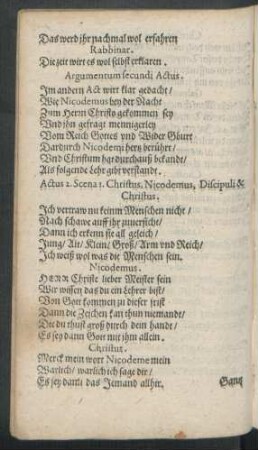 Das werd jhr nachmal wol erfahren
Rabbinar.
Die zeit wirt es wol selbst erklaren.
Argumentum secundi Actus.
Im andern Act wirt klar gedacht/
Wie Nicodemus bey der Nacht
Zum Herrn Christo gekommen sey
Und jhn gefragt mennigerley
Vom Reich Gottes vnd Wider Gburt
Dardurch Nicodemi hertz berührt/
Und Christum hat durchauß bekandt/
Als folgende Lehr gibt verstandt.
Actus 2. Scena 1. Christus, Nicodemus, Discipuli &
Christus.
Ich vertraw nu keinm Menschen nicht/
Nach schawe auff jhr zuuersicht/
Dann ich erkenn sie all geleich/
Jung/ Alt/ Klein/ Groß/ Arm vnd Reich/
Ich weiß wol was die Menschen sein.
Nicodemus.
Herr Christe lieber Meister fein
Wir wissen das du ein Lehrer bist/
Von Gott kommen zu dieser frist
Dann die Zeichen kan thun niemandt/
Die du thust groß durch dein handt/
Es sey dann Gott mit jhm allein.
Christus.
Merck mein wort Nicodeme mein
Warlich/ warlich ich sage dir/
Es sey dann das Jemand allhir.
Gantz